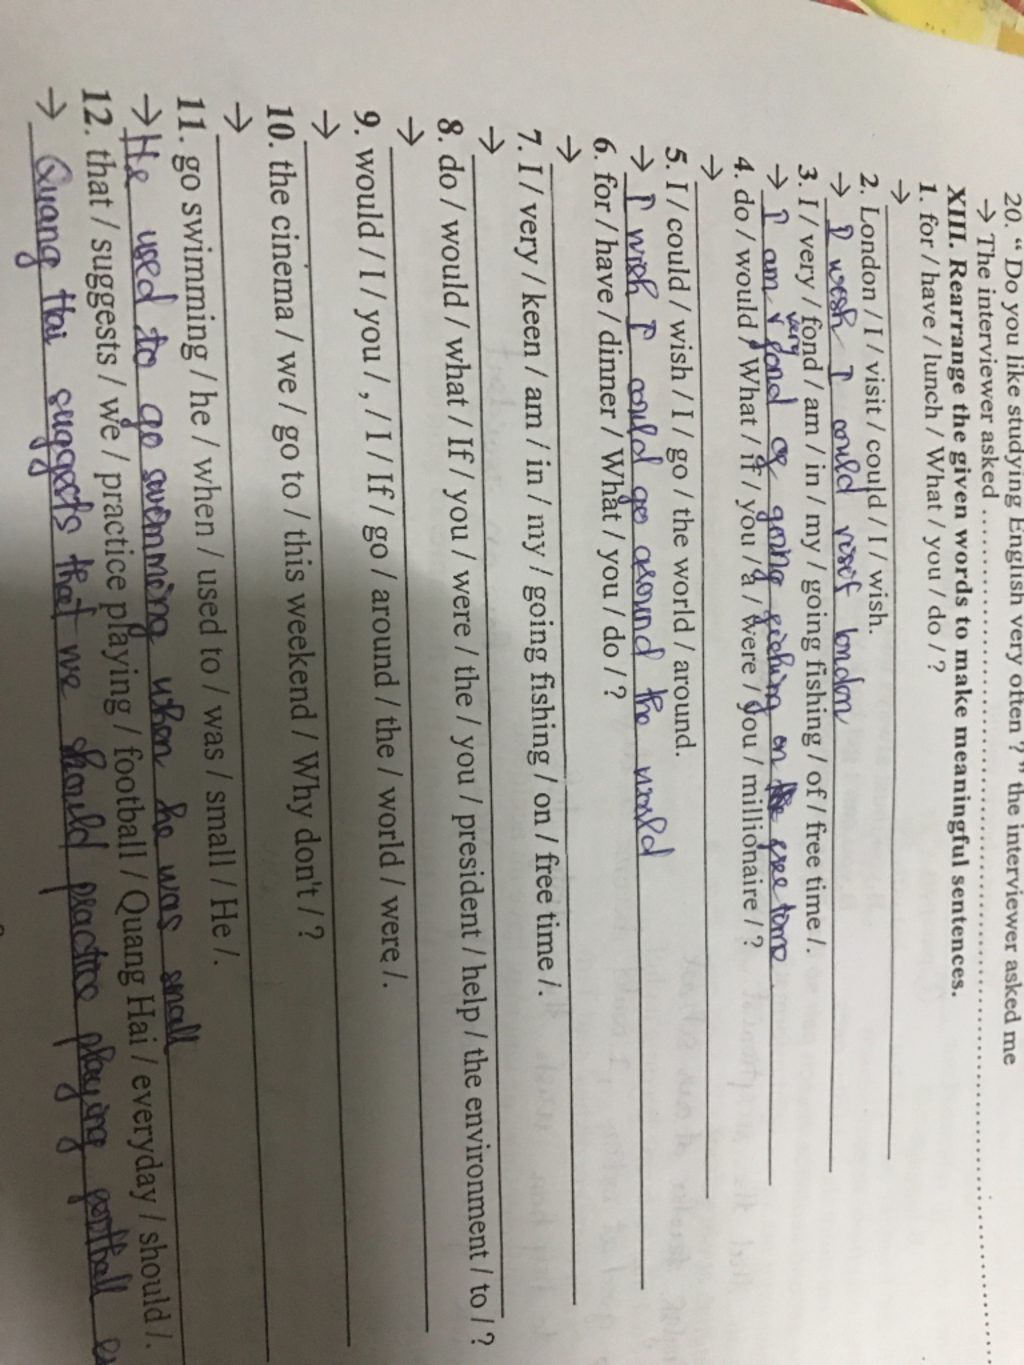 20. " Do you like studying English very often ? " the interviewer asked me
→ The interviewer asked ........................................................................
XIII. Rearrange the given words to make meaningful sentences.
1. for / have / lunch / What / you / do / ?
→
2. London / I / visit / could / I / wish.
→ I wish I could visit london
3. I / very / fond / am / in / my / going fishing / of / free time /.
→ I am very fond of going fishing on free time
4. do / would / What / if / you / a / were / you / millionaire / ?
→
5. I / could / wish / I / go / the world / around.
→ I wish I could go around the world
6. for / have / dinner / What / you / do / ?
→
7. I / very / keen / am / in / my / going fishing / on / free time /.
→
8. do / would / what / If / you / were / the / you / president / help / the environment / to / ?
→
9. would / I / you / , / I / If / go / around / the / world / were /.
→
10. the cinema / we / go to / this weekend / Why don't / ?
→
11. go swimming / he / when / used to / was / small / He /.
→ He used to go swimming when he was small
12. that / suggests / we / practice playing / football / Quang Hai / everyday / should /.
→ Quang Hai suggests that we should practice playing football